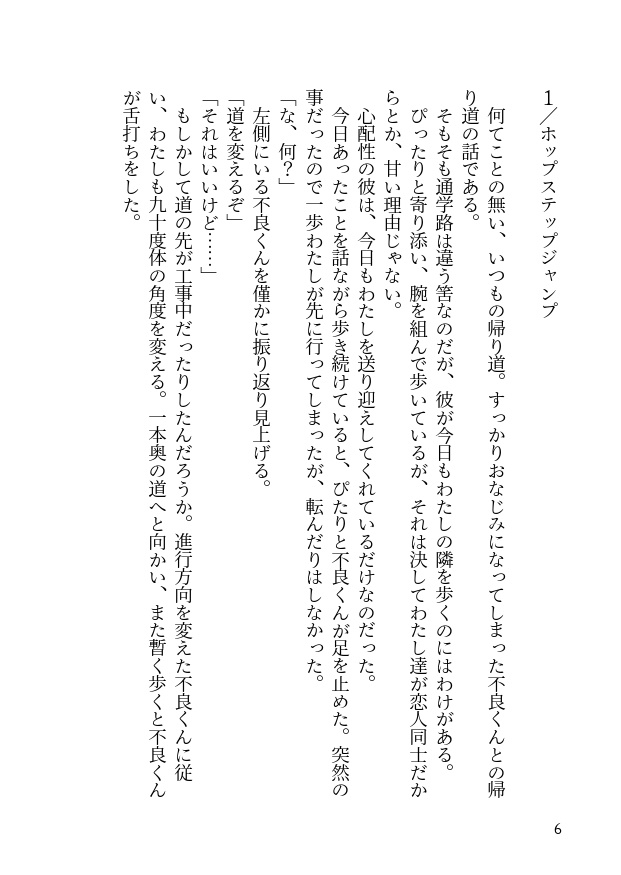 1／ホップステップジャンプ
　何てことの無い、いつもの帰り道。すっかりおなじみになってしまった不良くんとの帰
り道の話である。
　そもそも通学路は違う筈なのだが、彼が今日もわたしの隣を歩くのにはわけがある。
　ぴったりと寄り添い、腕を組んで歩いているが、それは決してわたし達が恋人同士だか
らとか、甘い理由じゃない。
　心配性の彼は、今日もわたしを送り迎えしてくれているだけなのだった。
　今日あったことを話ながら歩き続けていると、ぴたりと不良くんが足を止めた。突然の
事だったので一歩わたしが先に行ってしまったが、転んだりはしなかった。
「な、何？」
　左側にいる不良くんを僅かに振り返り見上げる。
「道を変えるぞ」
「それはいいけど……」
　もしかして道の先が工事中だったりしたんだろうか。進行方向を変えた不良くんに従
い、わたしも九十度体の角度を変える。一本奥の道へと向かい、また暫く歩くと不良くん
が舌打ちをした。
6